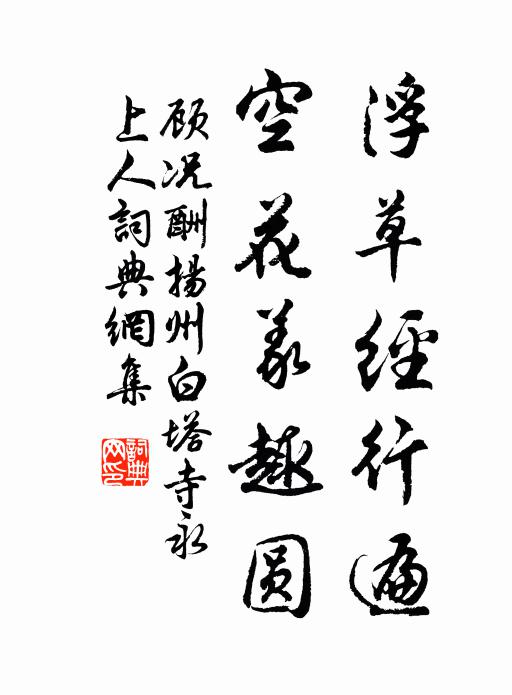 浮草經行遍
空花義趣圓
顾况酬揚州白塔寺永
上人詞典網集
詞典
网印